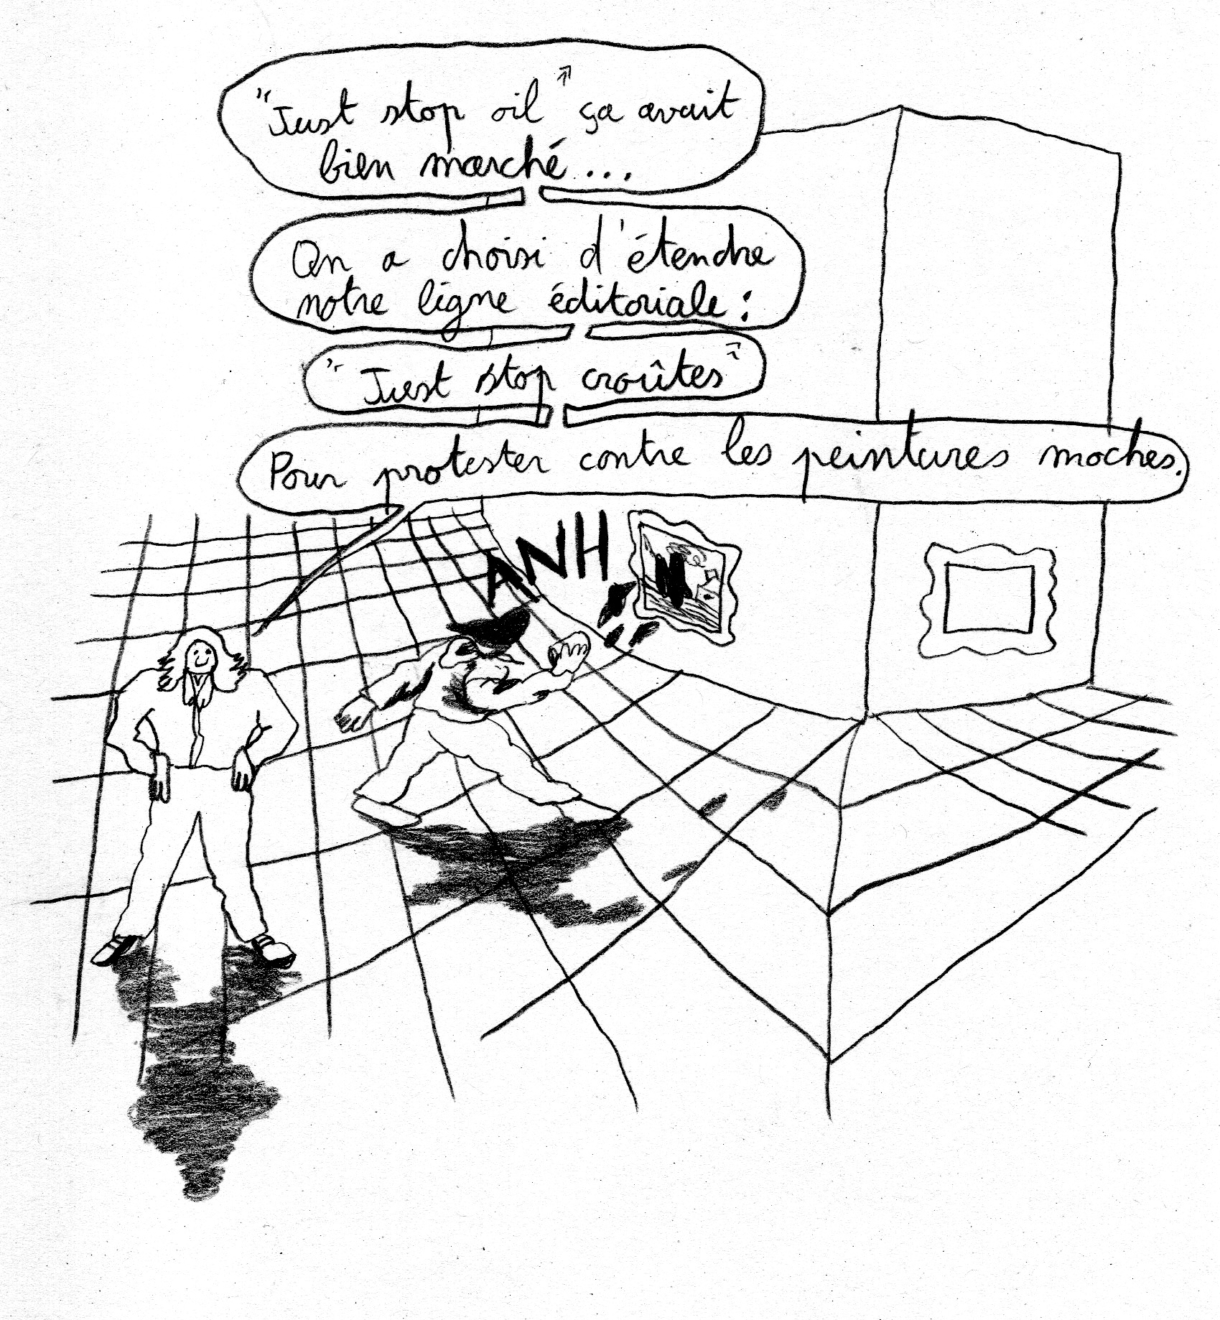 "Just stop oil" ça avait
bien marché...
On a choisi d'étendre
notre ligne éditoriale :
"Just stop croûtes"
Pour protester contre les peintures moches.
ANH